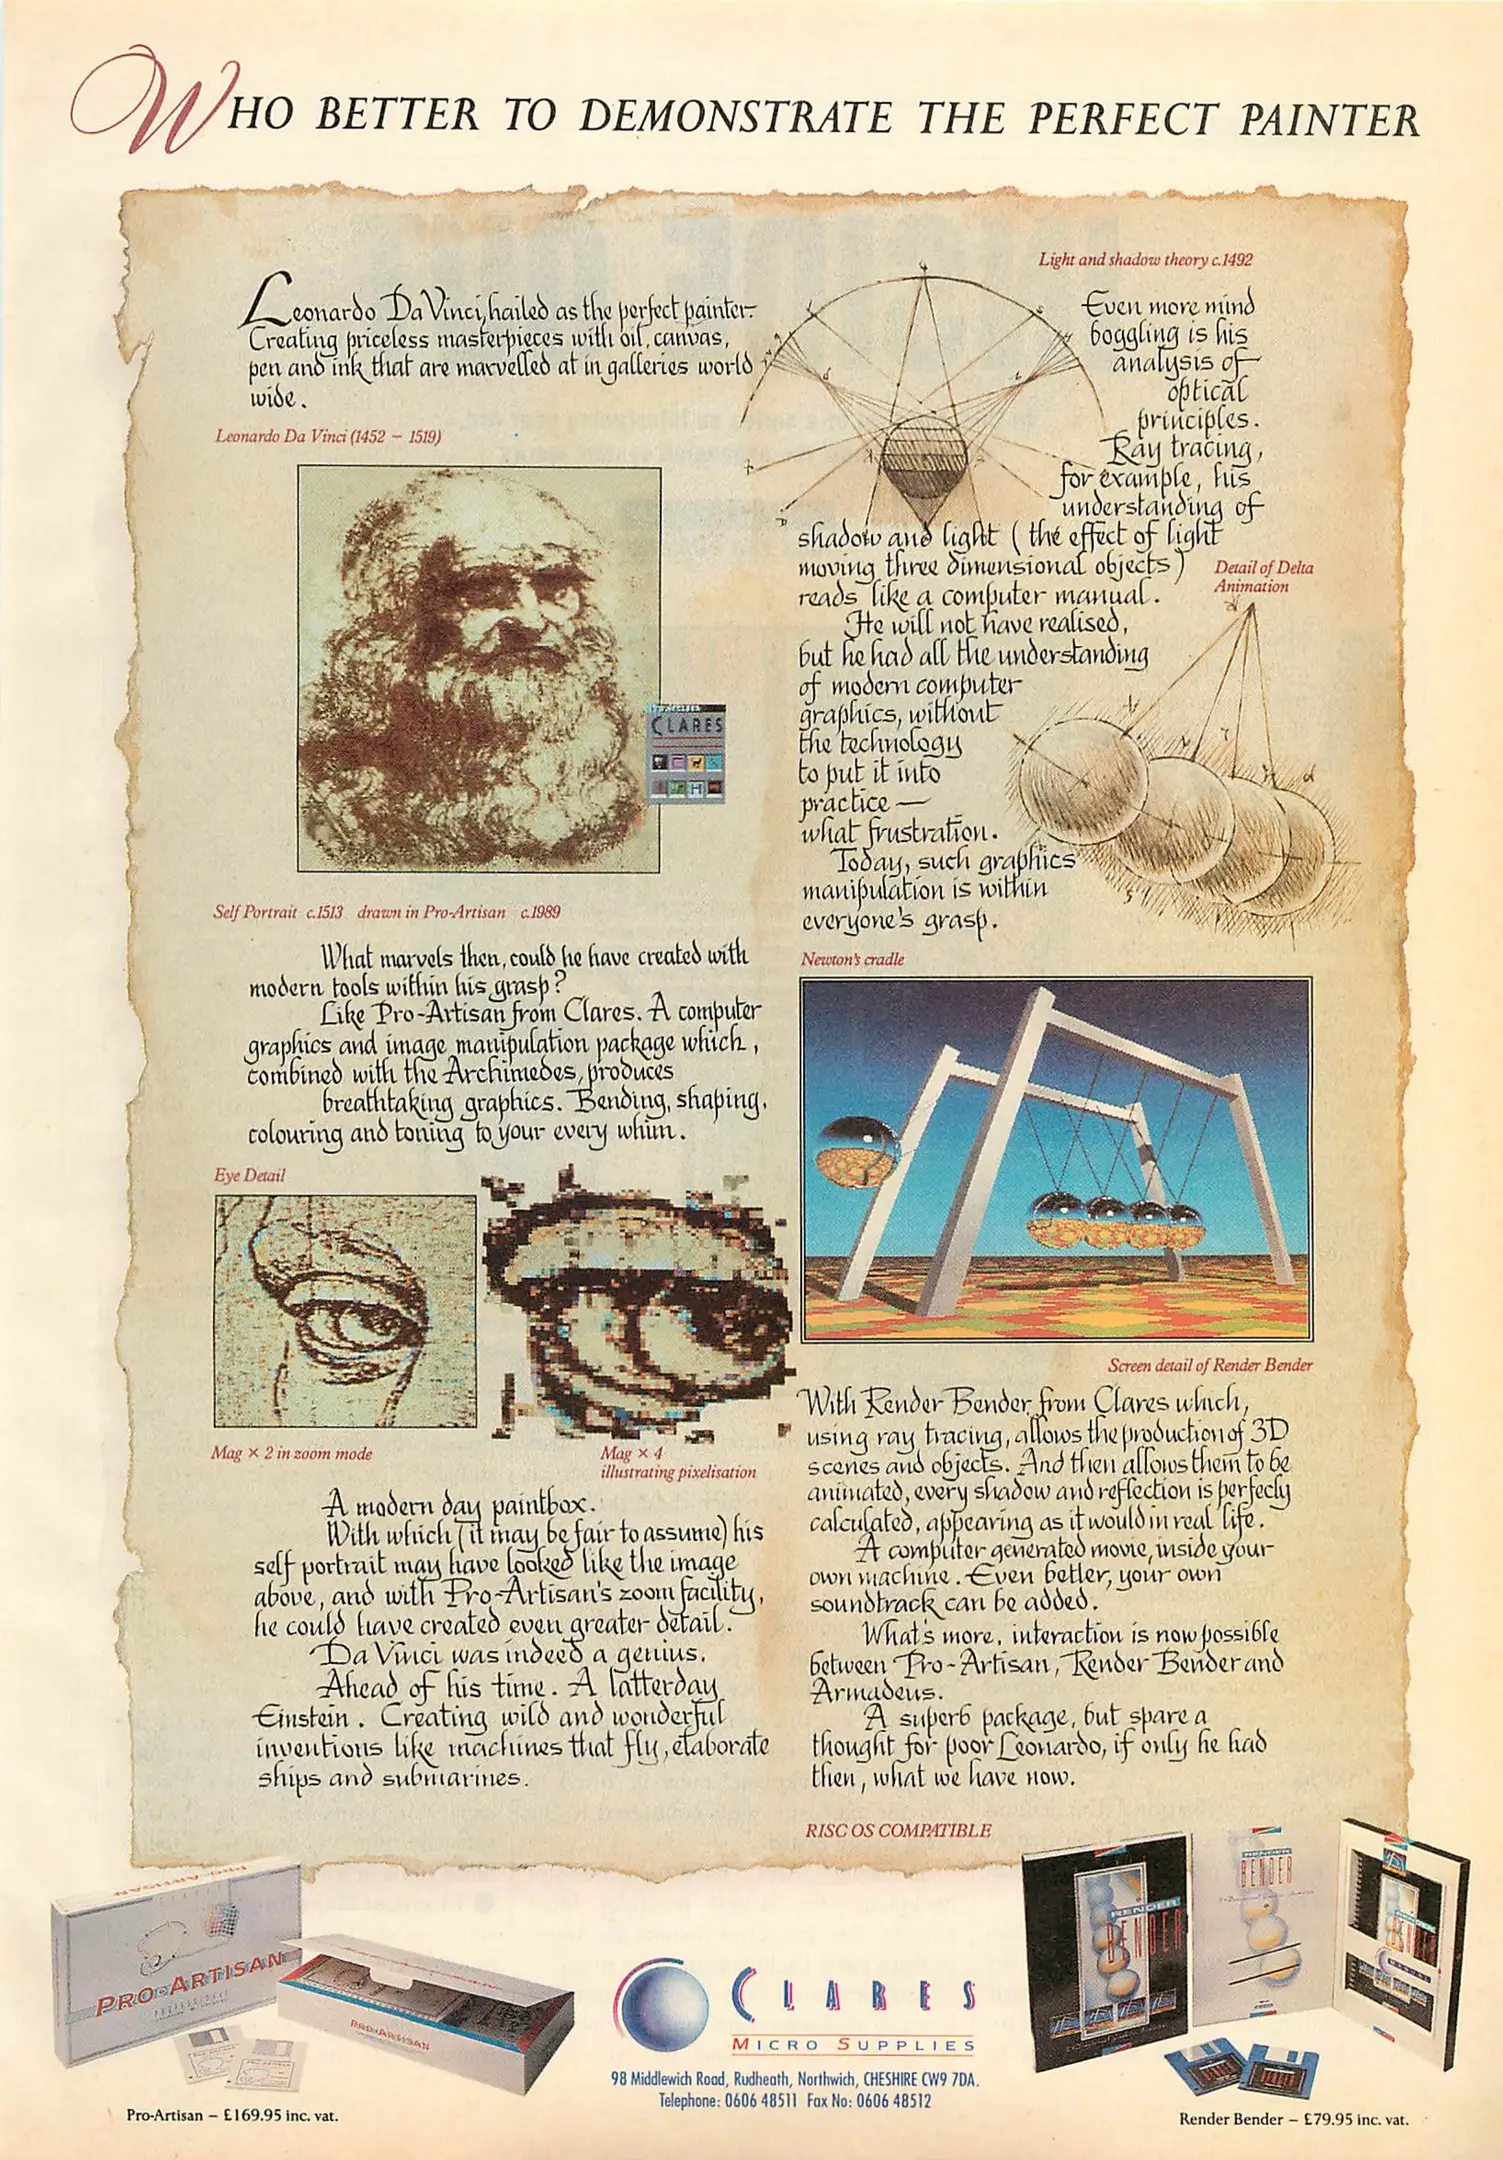 WHO BETTER TO DEMONSTRATE THE PERFECT PAINTER
Leonardo Da Vinci, hailed as the perfect painter.
Creating priceless masterpieces with oil, canvas,
pen and ink that are marvelled at in galleries world
wide.
Leonardo Da Vinci (1452 – 1519)
CLARES
Self Portrait c.1513 drawn in Pro-Artisan c.1989
What marvels then, could he have created with
modern tools within his grasp?
Like Pro-Artisan from Clares. A computer
graphics and image manipulation package which,
combined with the Archimedes, produces
breathtaking graphics. Bending, shaping,
colouring and toning to your every whim.
Eye Detail
Mag × 2 in zoom mode
Mag × 4
illustrating pixelisation
A modern day paintbox.
With which (it may be fair to assume) his
self portrait may have looked like the image
above, and with Pro-Artisan's zoom facility,
he could have created even greater detail.
Da Vinci was indeed a genius.
Ahead of his time. A latterday
Einstein. Creating wild and wonderful
inventions like machines that fly, elaborate
ships and submarines.
Light and shadow theory c.1492
Even more mind
boggling is his
analysis of
optical
principles.
Ray tracing,
for example, his
understanding of
shadow and light (the effect of light
moving three dimensional objects)
reads like a computer manual.
Detail of Delta
Animation
He will not have realised,
but he had all the understanding
of modern computer
graphics, without
the technology
to put it into
practice —
what frustration.
Today, such graphics
manipulation is within
everyone's grasp.
Newton's cradle
Screen detail of Render Bender
With Render Bender from Clares which,
using ray tracing, allows the production of 3D
scenes and objects. And then allows them to be
animated, every shadow and reflection is perfecly
calculated, appearing as it would in real life.
A computer generated movie, inside your
own machine. Even better, your own
soundtrack can be added.
What's more, interaction is now possible
between Pro-Artisan, Render Bender and
Armadeus.
A superb package, but spare a
thought for poor Leonardo, if only he had
then, what we have now.
RISC OS COMPATIBLE
PRO-ARTISAN
PRO-ARTISAN
PRO-ARTISAN
RENDER
BENDER
RENDER
BENDER
RENDER
BENDER
CLARES
MICRO SUPPLIES
98 Middlewich Road, Rudheath, Northwich, CHESHIRE CW9 7DA.
Telephone: 0606 48511 Fax No: 0606 48512
Pro-Artisan – £169.95 inc. vat.
Render Bender – £79.95 inc. vat.